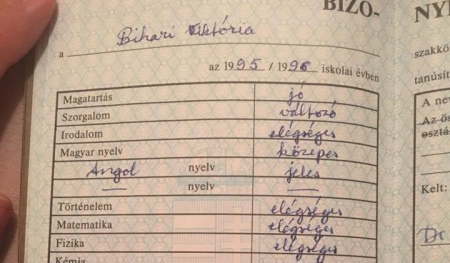 BIZO-
Bihari Viktória
a
az 1995/1996 iskolai évben
Magatartás jó
Szorgalom változó
Irodalom elégséges
Magyar nyelv közepes
Angol nyelv jeles
— nyelv —
Történelem elégséges
Matematika elégséges
Fizika elégséges
Kémia
NY
szakkö
tanúsít
A nev
Az ös
osztá
Kelt:
Dr